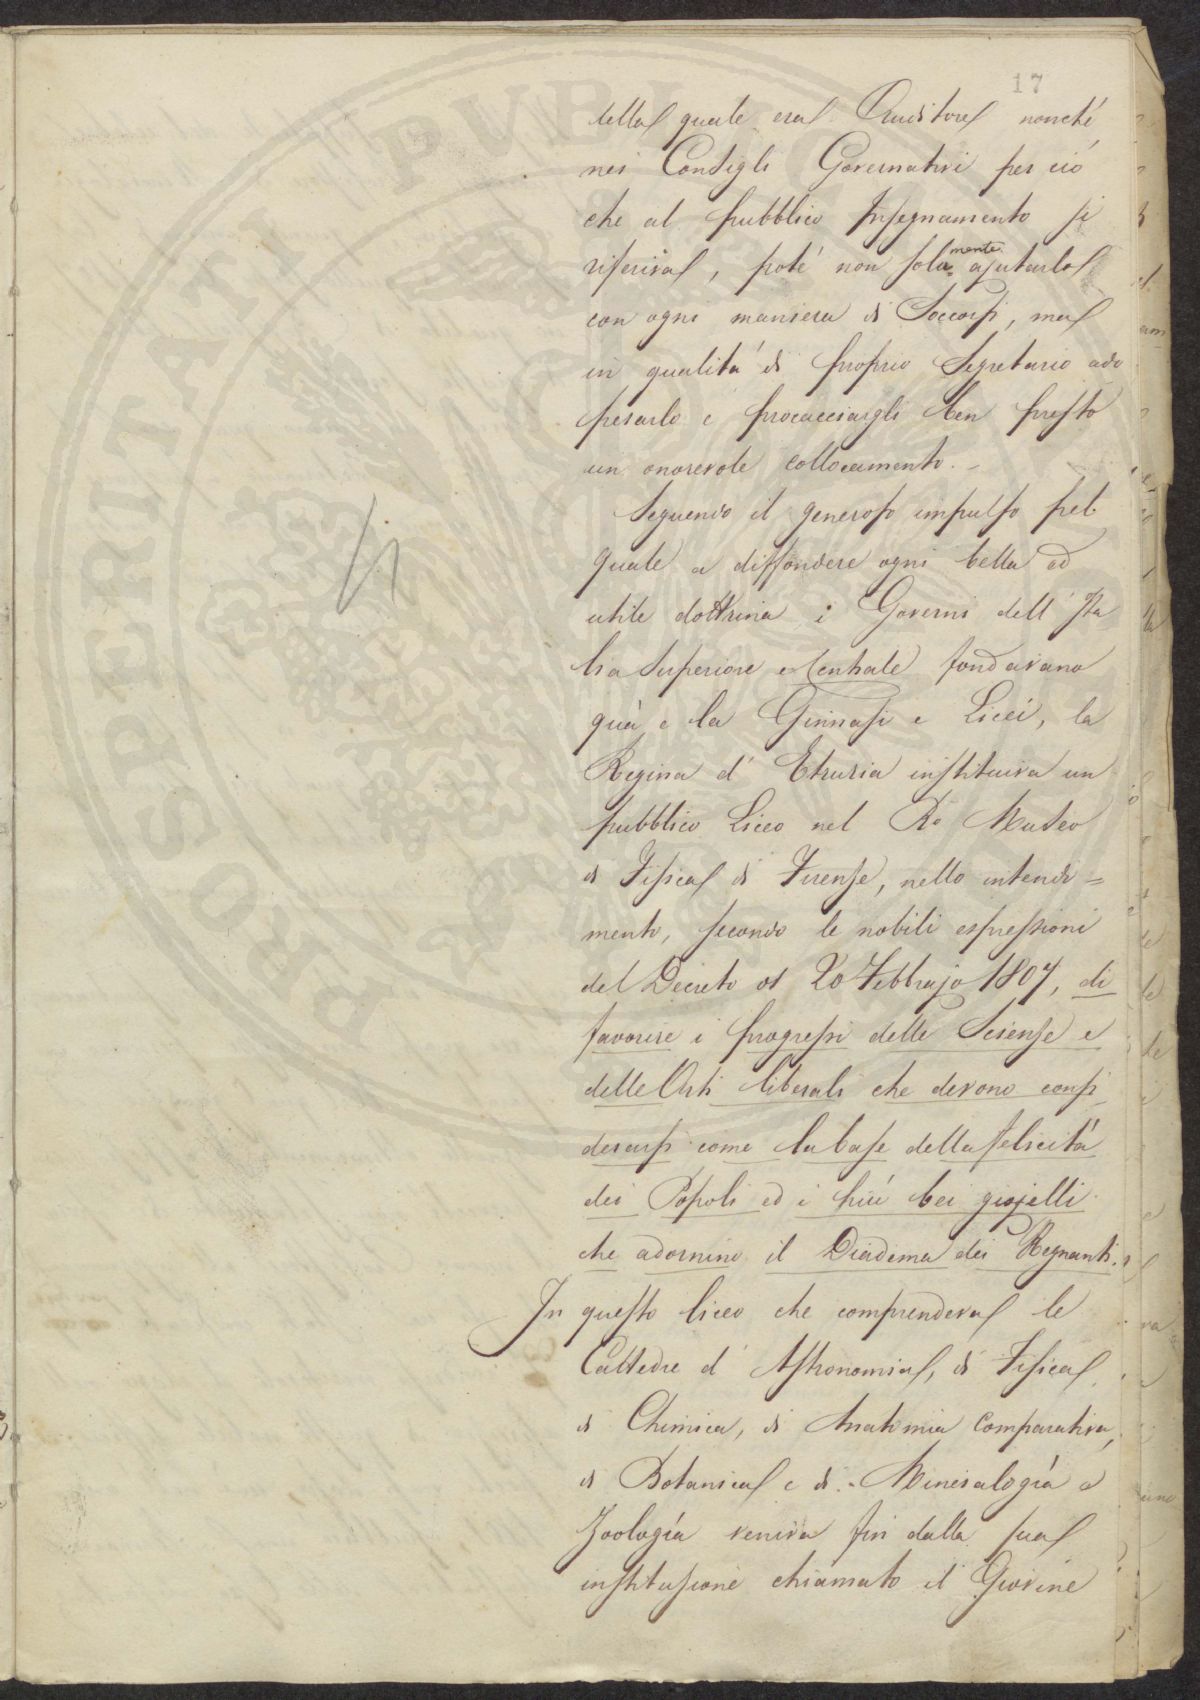 17
della quale era Auditore nonché
nei Consigli Governativi per ciò
che al pubblico Insegnamento si
riferiva, poté non solamente ajutarlo
con ogni maniera di Soccorsi, ma
in qualitá di proprio Segretario ado
perarlo e procacciargli ben presto
un onorevole collocamento. -
Seguendo il generoso impulso pel
quale a diffondere ogni bella ed
utile dottrina i Governi dell' Ita
lia Superiore e Centrale fondavano
quà e la Ginnasi e Licéi, la
Regina d' Etruria instituiva un
pubblico Liceo nel Ro Museo
di Fisica di Firenze, nello intendi=
mento, secondo le nobili espressioni
del Decreto di 20 Febbrajo 1807, di
favorire i progressi delle Scienze e
delle Arti liberali che devono consi
derarsi come la base della felicità
dei Popoli ed i più bei giojelli
che adornino il Diadema dei Regnanti.
In questo liceo che comprendeva le
Cattedre d' Astronomia, di Fisica
di Chimica, di Anatomia Comparativa,
di Botanica e di Mineralogía e
Zoología veniva fin dalla sua
instituzione chiamato il Giovine
PROSPERITATI PVBLIC